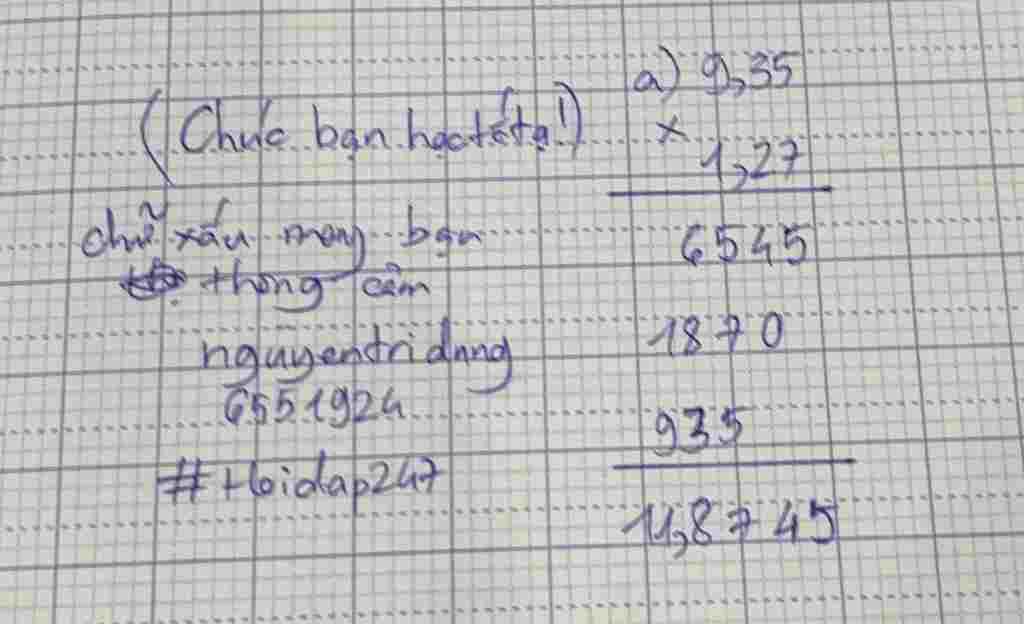 a) 9,35
×
1,27
6545
1870
935
11,8745
(Chúc bạn học tốt ạ!)
chữ xấu mong bạn
thông cảm
nguyentridung
6551924
#+loidap247